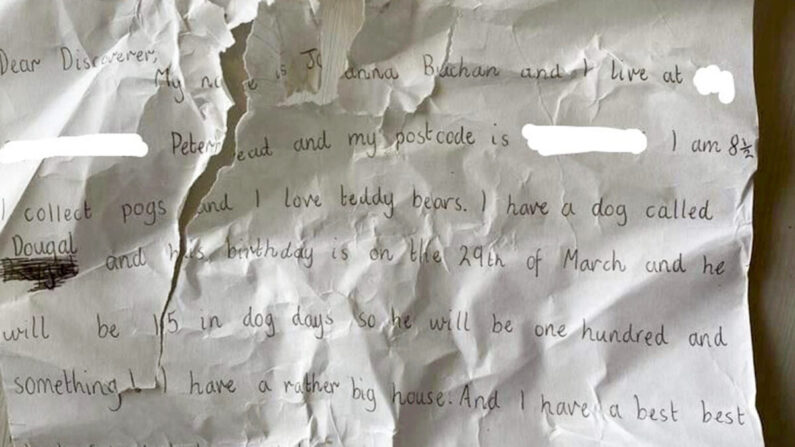 Dear Discoverer,
My na e is Jo anna Buchan and I live at
Peterhead and my postcode is I am 8½
I collect pogs and I love teddy bears. I have a dog called
Dougal
and his birthday is on the 29th of March and he
will be 15 in dog days so he will be one hundred and
something! I have a rather big house. And I have a best best